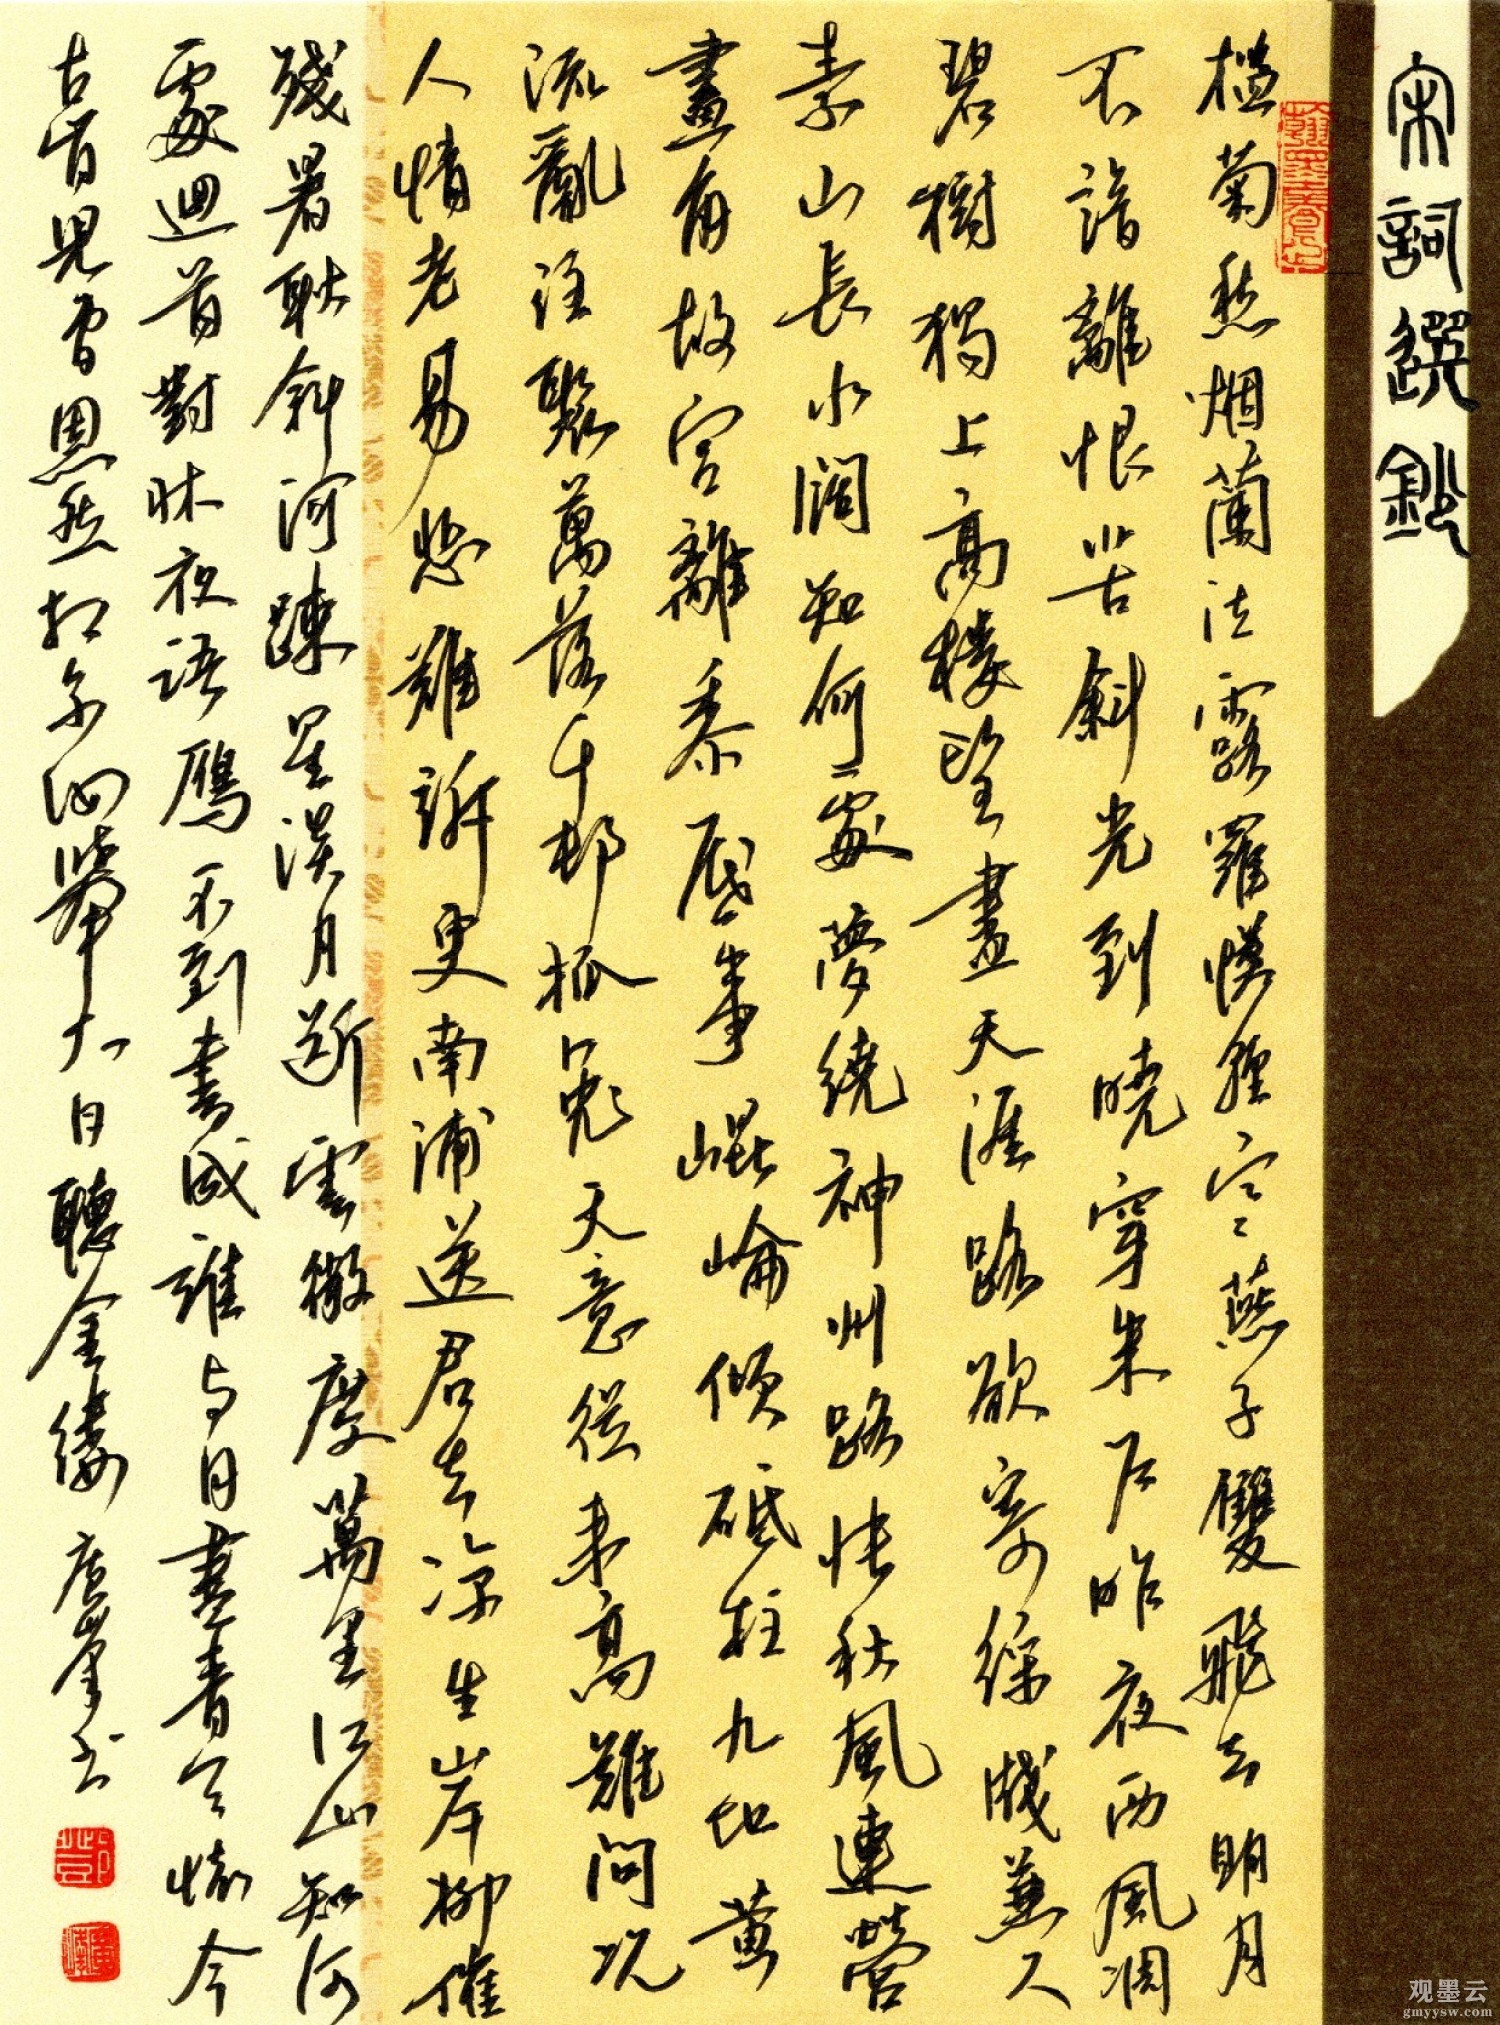 宋詞選鈔
檻菊愁烟蘭泣露羅幙輕寒燕子雙飛去明月
不諳離恨苦斜光到曉穿朱户昨夜西風凋
碧樹獨上高樓望盡天涯路欲寄綵牋兼尺
素山長水闊知何處夢繞神州路悵秋風連營
畫角故宮離黍底事崐崘傾砥柱九地黄
流亂注聚萬落千邨狐兔天意從來高難問况
人情老易悲難訴更南浦送君去凉生岸柳催
殘暑耿斜河疎星淡月斷雲微度萬里江山知何
處迴首對牀夜語鴈不到書成誰与目盡青天懷今
古肯兒曹恩怨相尔汝舉大白聽金縷 书
观墨云
gmyysw.com